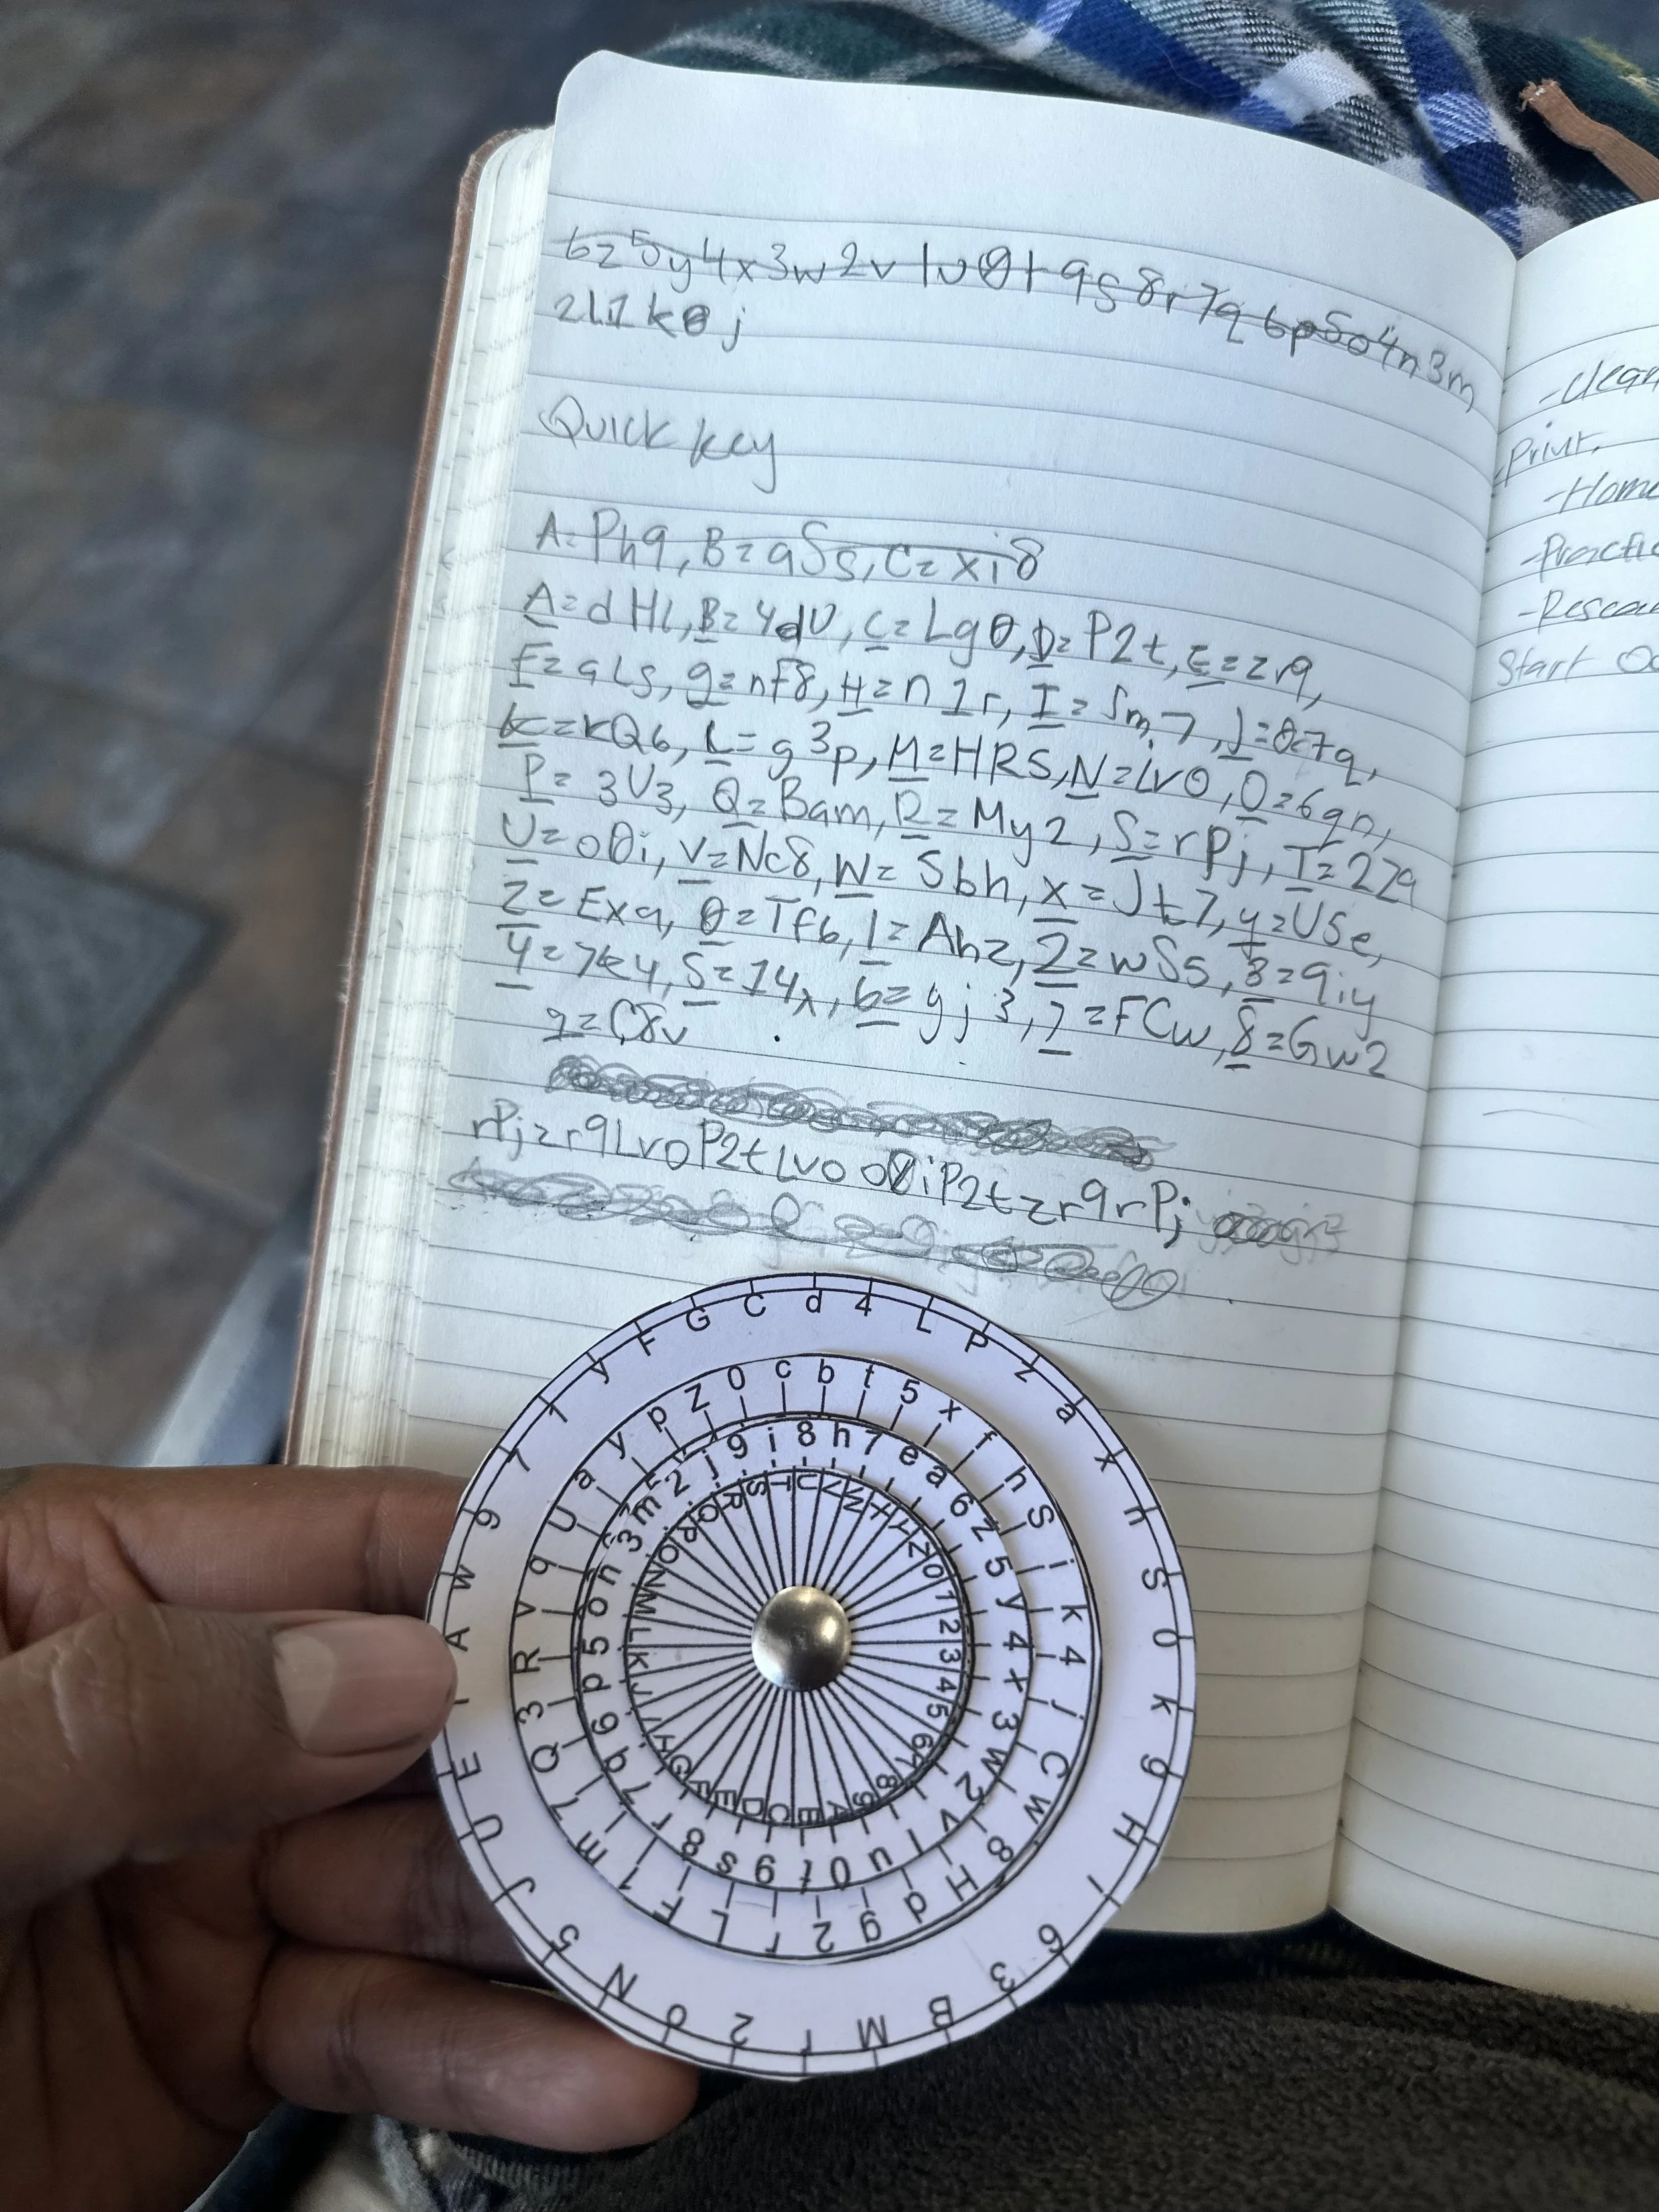 6z5y4x3w2v1u0t9s8r7q6p5o4n3m
2l1k0j
Quick key
A=Ph9, B=aSs, C=xi8
A=dHl, B=4dU, C=Lg0, D=P2t, E=zr9,
F=aLs, g=nF8, H=n1r, I=Sm7, J=0c7q,
K=kQ6, L=g3p, M=HRS, N=Lv0, O=6qn,
P=3U3, Q=Bam, R=My2, S=rPj, T=2Z9
U=o0i, V=Nc8, W=Sbh, X=Jt7, y=USe,
Z=Exa, 0=Tf6, 1=Ahz, 2=wS5, 3=9iy
4=7z4, 5=14x, 6=yj3, 7=FCw, 8=Gw2
9=C8v
rPjzr9Lv0P2tLv0o0iP2tzr9rPj
-clean
-Print,
-Home
-Practic
-Resea
Start
d 4 L P z a x h S 0 k g H i 6 3 B M r 2 o N 5 J U E A w 9 7 1 y F G C
c b t 5 x f h S i k 4 j C w 8 H d g 2 r L F 1 m 7 Q 3 R v q U a y p Z 0
8 h 7 e a 6 z 5 y 4 x 3 w 2 v 1 u 0 t 9 s 8 r 7 q 6 p 5 o n 3 m 2 j 9 i
A B C D E F G H I J K L M N O P Q R S T U V W X Y Z 0 1 2 3 4 5 6 7 8 9